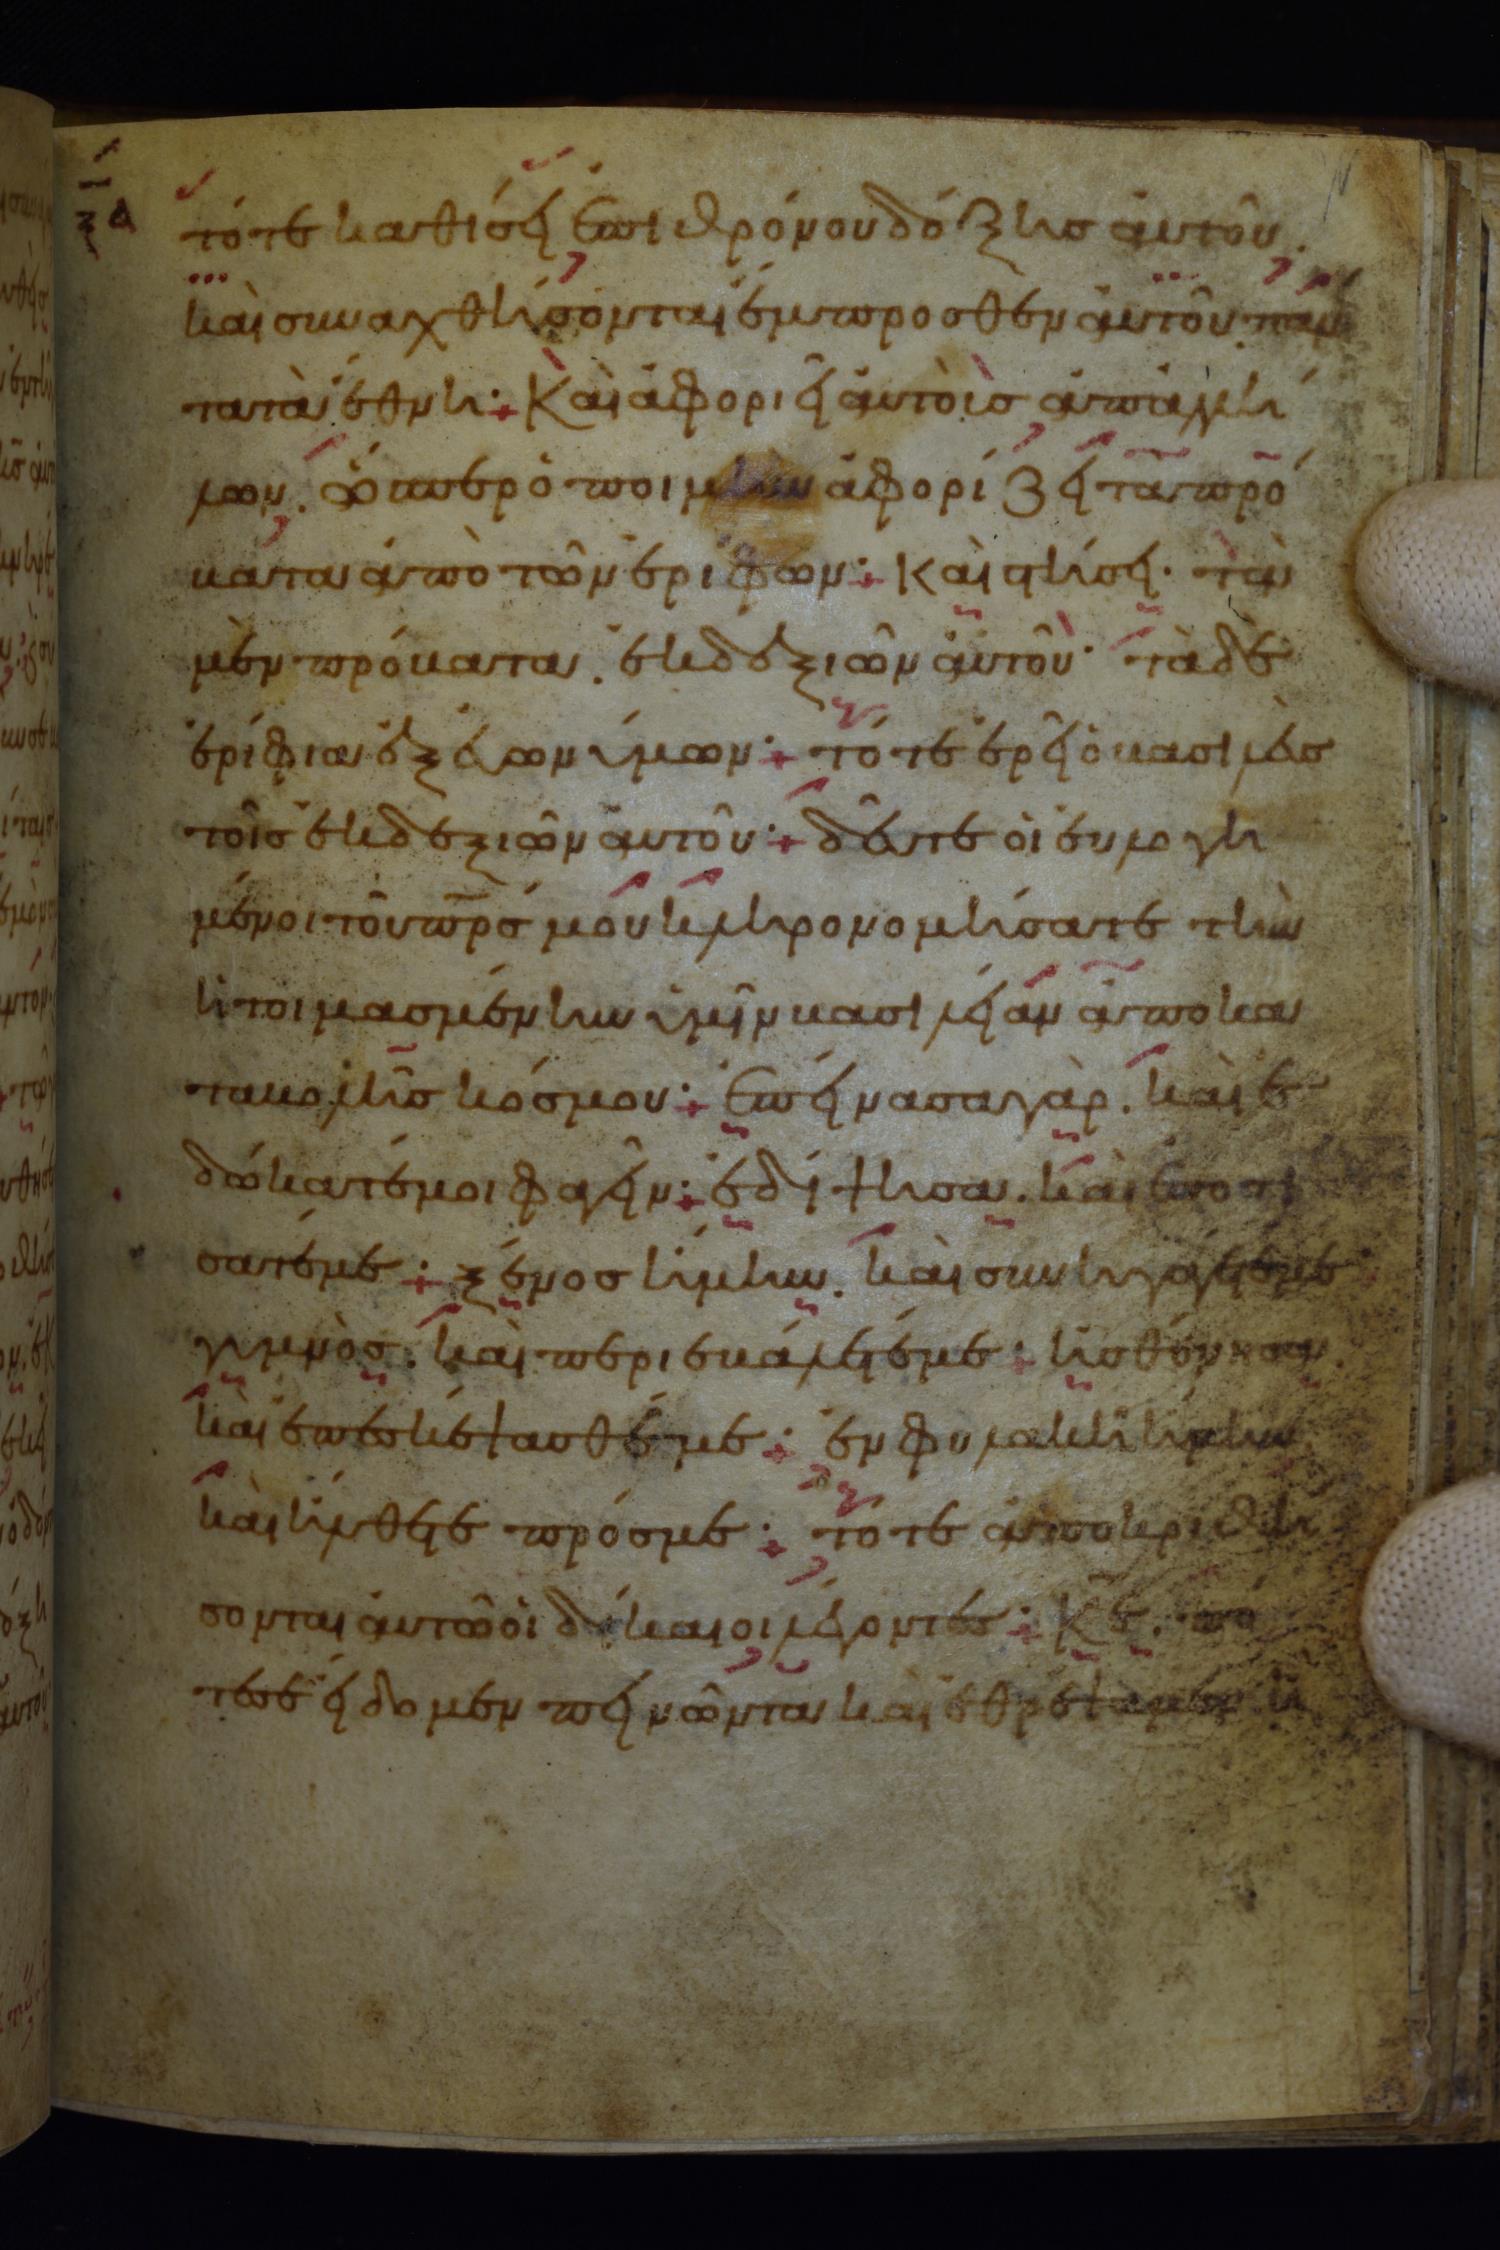 ξδ
τότε καθίσει ἐπι θρόνου δόξης ἀυτοῦ.
καὶ συναχθήσονται ἔμπροσθεν ἀυτοῦ. πάν
τα τὰ ἔθνη: Καὶ ἀφοριεῖ ἀυτοὺσ ἀπ ἀλλή
λων. ὥσπερ ὁ ποιμὴν ἀφορίζει τὰ πρό
βατα ἀπὸ τῶν ἐρίφων: Καὶ στήσει. τὰ
μὲν πρόβατα. ἐκ δεξιῶν ἀυτοῦ· τὰ δὲ
ἐρίφια ἐξ ἐυωνύμων: τότε ἐρεῖ ὁ βασιλεὺσ
τοῖσ ἐκ δεξιῶν ἀυτοῦ: δεῦτε ὁι ἐυλογη
μένοι τοῦ πρσ μου κληρονομήσατε τὴν
ἡτοιμασμένην ὑμῖν βασιλείαν ἀπο κα
ταβολῆσ κόσμου: Ἐπείνασα γὰρ. καὶ ἐ
δώκατέ μοι φαγεῖν: ἐδίψησα. καὶ ἐποτί
σατέ με: ξένοσ ἤμην. καὶ συνηγάγετέ με
γυμνὸσ. καὶ περιεβάλετέ με: ἠσθένησα
καὶ ἐπεσκέψασθέ με: ἐν φυλακῆ ἤμην
καὶ ἤλθετε πρόσ με: τότε ἀποκριθή
σονται ἀυτῶ ὁι δίκαιοι λέγοντεσ: Κε. πό
τε σε εἴδομεν πεινῶντα καὶ ἐθρέψαμεν. ἢ